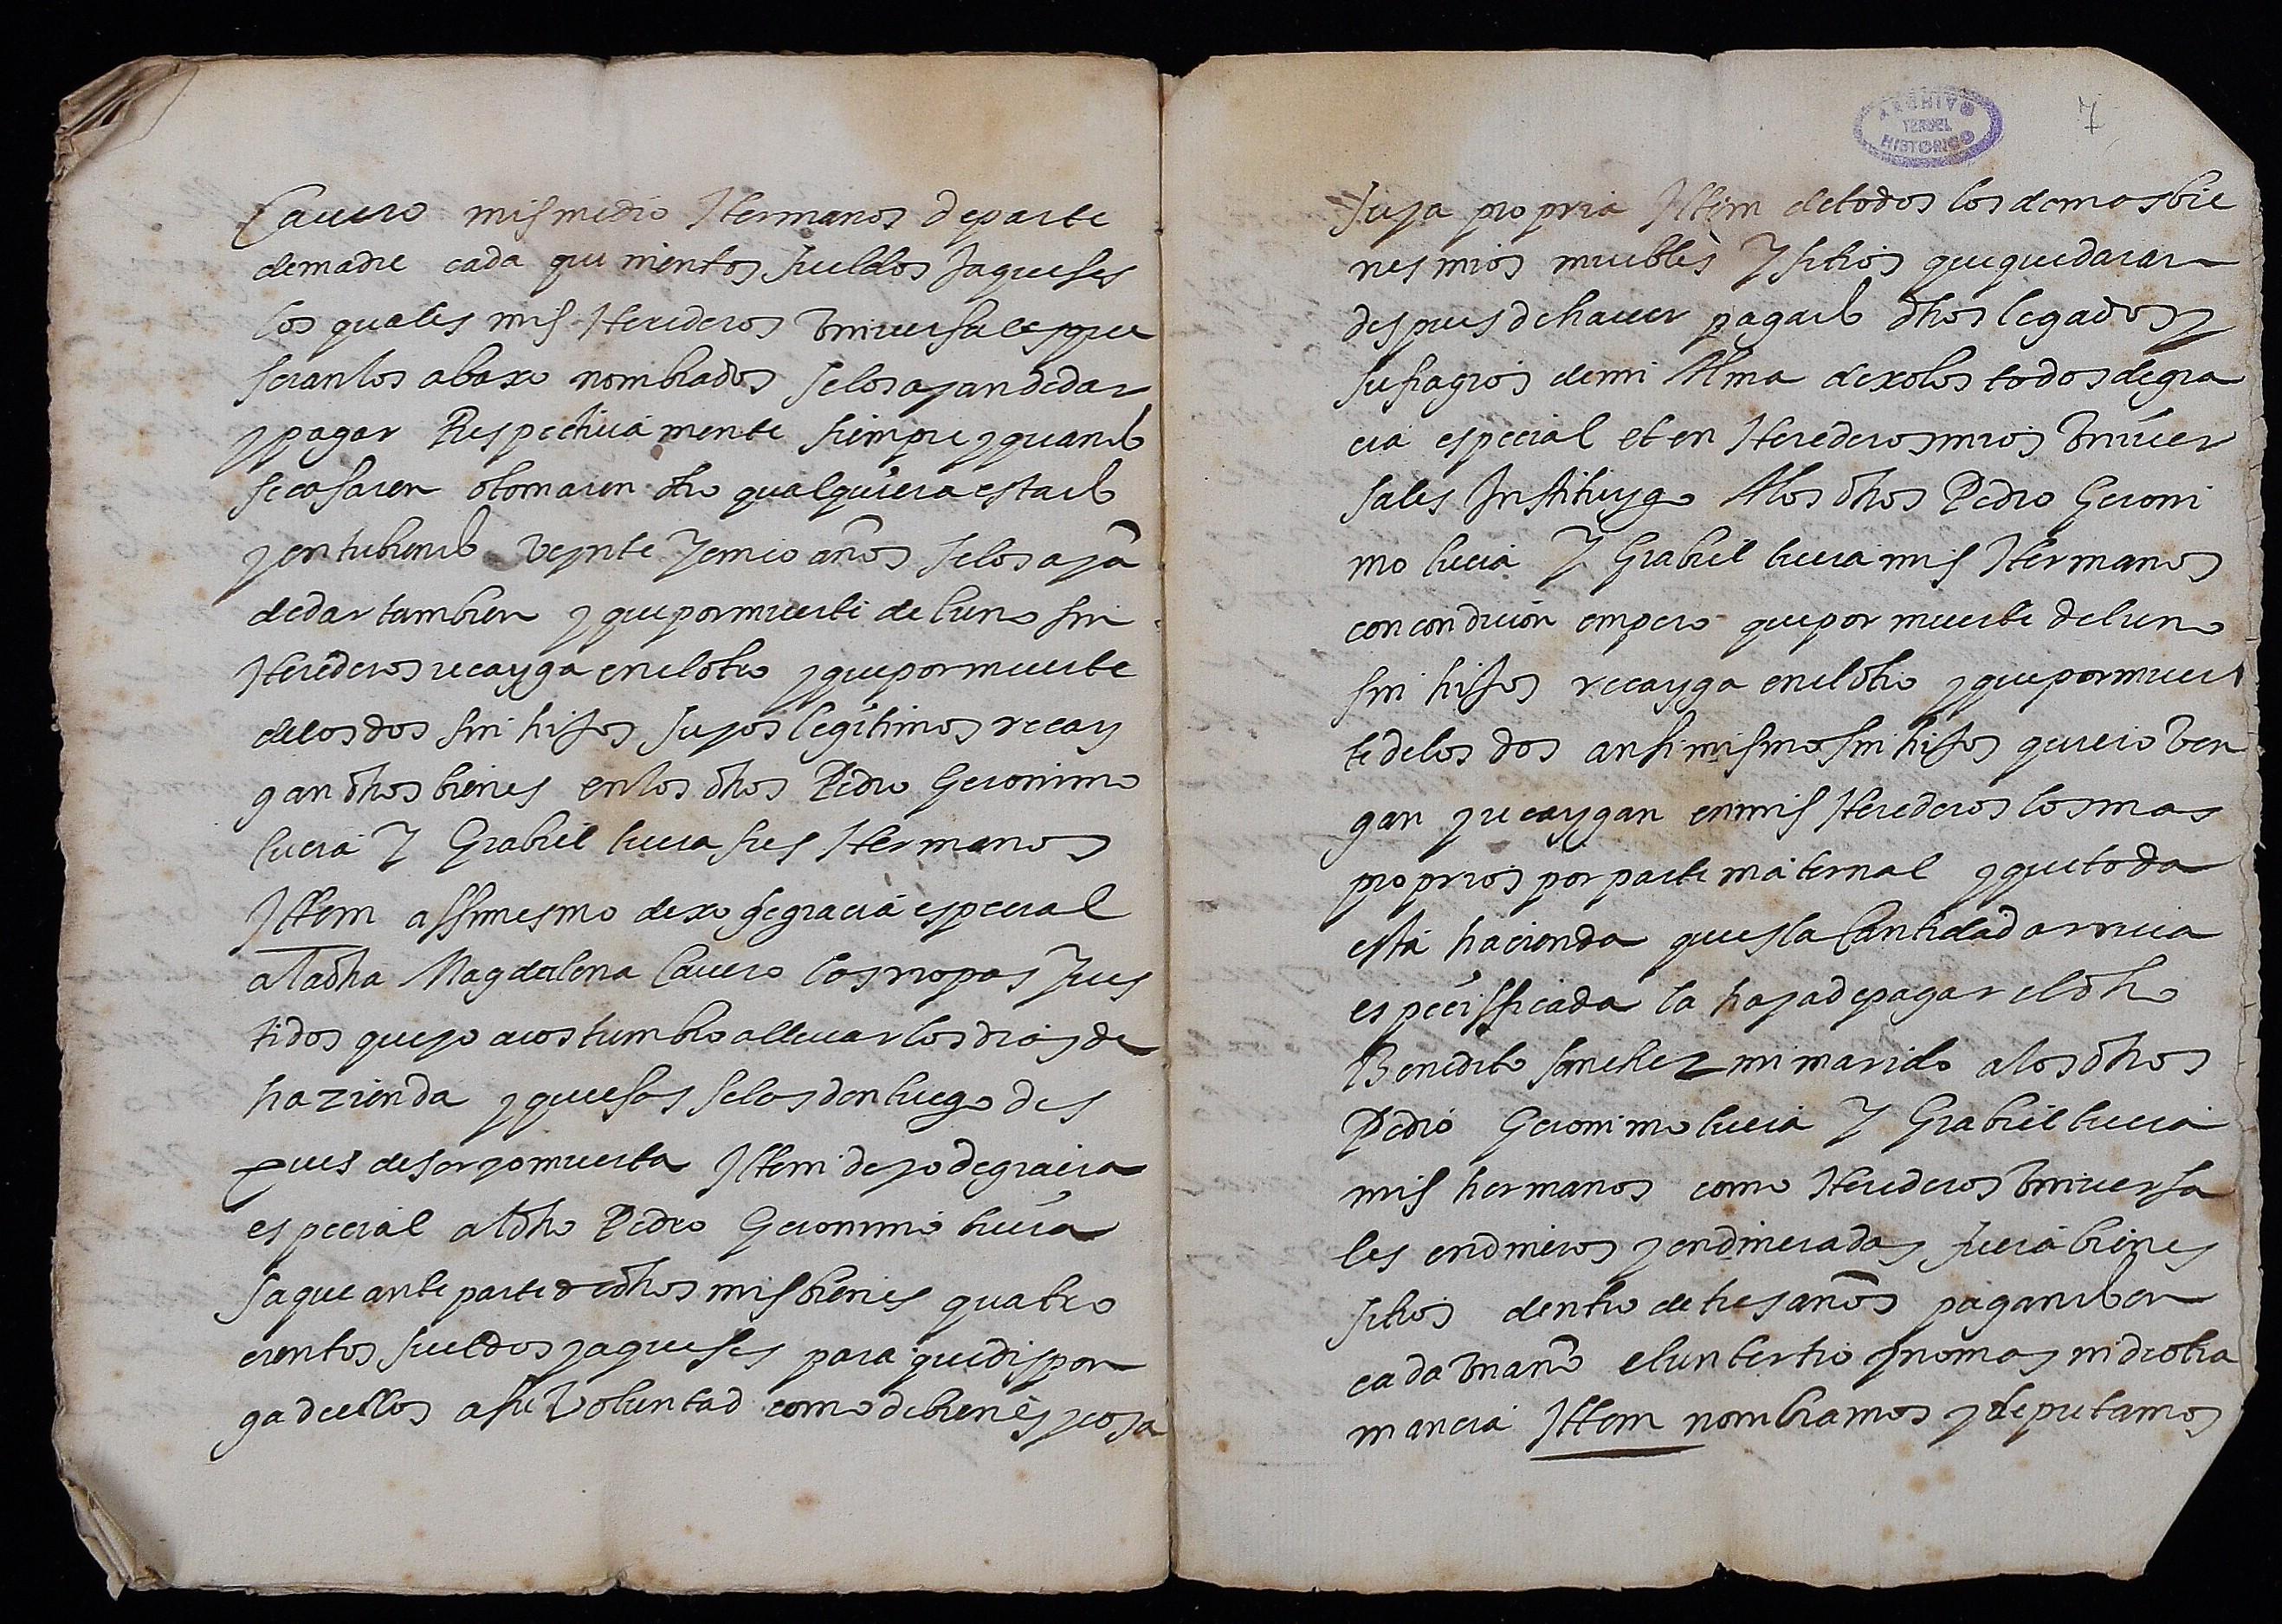 Cauero mis medio Hermanos de parte
de madre cada quinientos sueldos Jaqueses
los quales mis Herederos Vniuersales que
seran los abaxo nombrados se los ayan de dar
y pagar Respectiuamente siempre y quando
se casaren o tomaren otro qualquiera estado
y en tubiendo veynte y cinco años se los ayã
de dar tambien y que por muerte del uno sin
Herederos recayga en el otro y que por muerte
de los dos sin hijos suyos legitimos recay
gan dhos bienes en los dhos Pedro Geronimo
lucia Y Grabiel lucia sus Hermanos
Ittem assimesmo dexo de gracia especial
a la dha Magdalena Cauero las ropas y ues
tidos que yo acostumbro a lleuar los dias de
hazienda y que esos se los den luego des
pues de ser yo muerta Ittem dejo de gracia
especial al dho Pedro Geronimo lucia
saque ante parte de dhos mis bienes quatro
cientos sueldos jaqueses para que dispon
ga de ellos a su voluntad como de bienes y cosa
ARCHIVO
TERUEL
HISTORICO
7
suya propria Ittem de todos los demas bie
nes mios muebles Y sitios que quedaran
despues de hauer pagado dhos legados y
sufragios de mi Alma dexolos todos de gra
cia especial et en Herederos mios Vniuer
sales Instituygo A los dhos Pedro Geroni
mo lucia Y Grabiel lucia mis Hermanos
con condicion empero que por muerte del uno
sin hijos recayga en el otro y que por muer
te de los dos ansimismo sin hijos quiero ven
gan y recaygan en mis Herederos los mas
proprios por parte maternal y que toda
esta hacienda que es la Cantidad arriua
especifficada la haya de pagar el dho
Benedito sanchez mi marido a los dhos
Pedro Geronimo lucia Y Grabiel lucia
mis hermanos como Herederos Vniuersa
les en dineros y en dineradas fuera bienes
sitios dentro de tres años pagando en
cada vn año el un tertio y no mas ni de otra
manera Ittem nombramos y deputamos